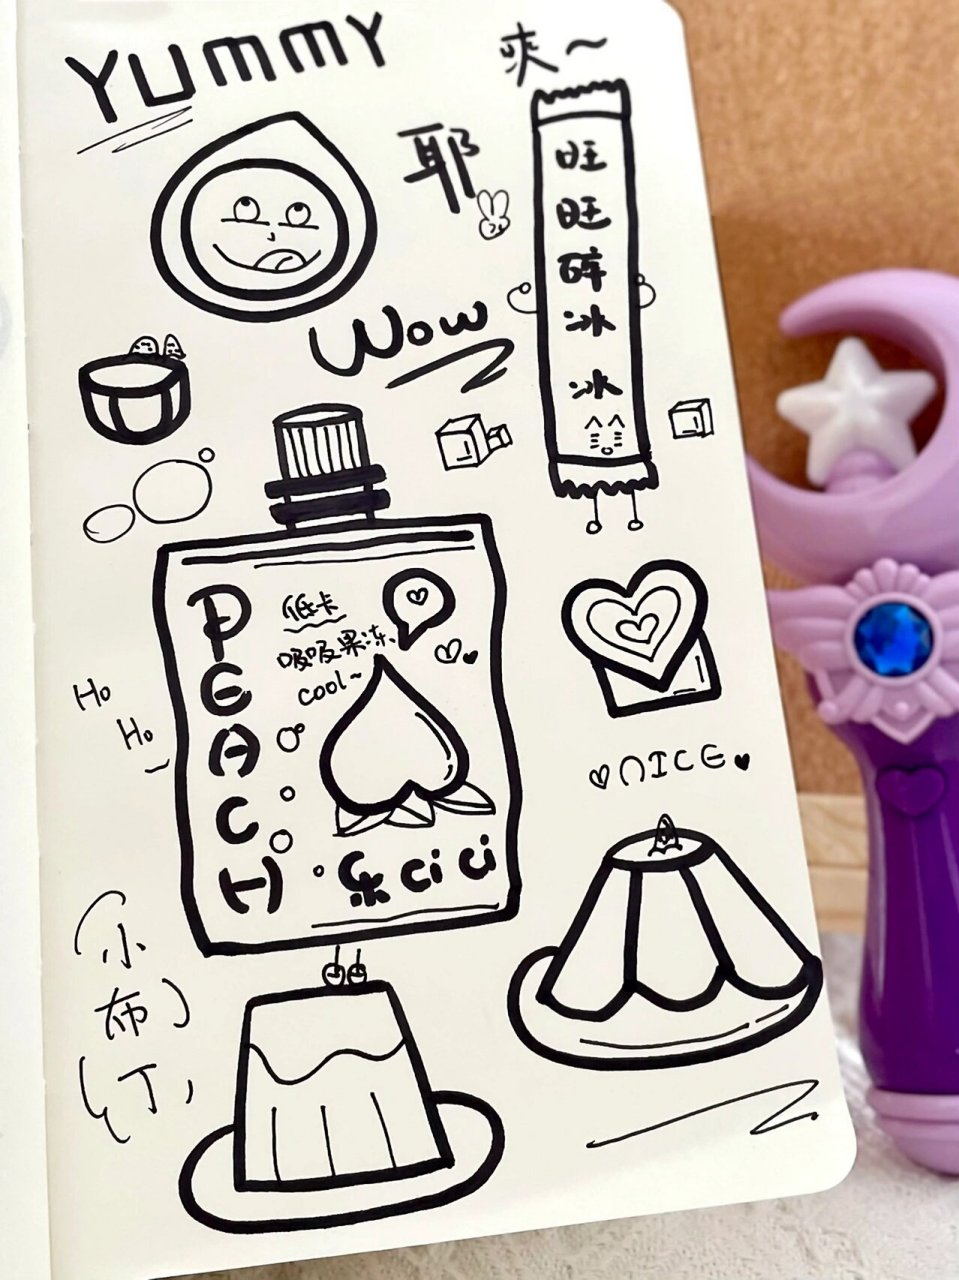 YUMMY
爽～
耶
旺
旺
碎
冰
冰
Wow
PEACH
低卡
吸吸果冻
cool~
乐cici
Ho
Ho
NICE
小
布
丁